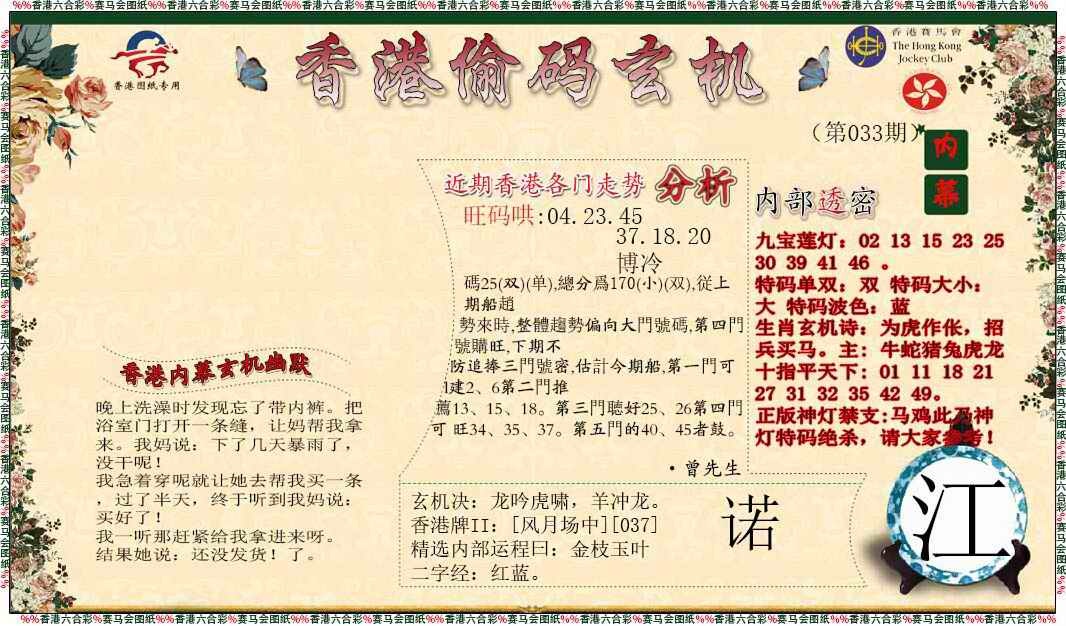 %%香港六合彩%赛马会图纸%%香港六合彩%赛马会图纸%%香港六合彩%赛马会图纸%%香港六合彩%赛马会图纸%%香港六合彩%赛马会图纸%%香港六合彩%赛马会图纸%%香港六合彩%
香港图纸专用
香港偷码玄机
香港賽馬會
The Hong Kong
Jockey Club
（第033期）
内
幕
近期香港各门走势 分析
旺码哄:04.23.45
37.18.20
博冷
碼25(双)(单),總分爲170(小)(双),從上
期船趙
勢來時,整體趨勢偏向大門號碼,第四門
號購旺,下期不
防追捧三門號密,估計今期船,第一門可
建2、6第二門推
薦13、15、18。第三門聽好25、26第四門
可 旺34、35、37。第五門的40、45者鼓。
·曾先生
内部透密
九宝莲灯：02 13 15 23 25
30 39 41 46 。
特码单双：双 特码大小：
大 特码波色：蓝
生肖玄机诗：为虎作伥，招
兵买马。主：牛蛇猪兔虎龙
十指平天下：01 11 18 21
27 31 32 35 42 49。
正版神灯禁支:马鸡此乃神
灯特码绝杀，请大家参考！
香港内幕玄机幽默
晚上洗澡时发现忘了带内裤。把
浴室门打开一条缝，让妈帮我拿
来。我妈说：下了几天暴雨了，
没干呢！
我急着穿呢就让她去帮我买一条
，过了半天，终于听到我妈说：
买好了！
我一听那赶紧给我拿进来呀。
结果她说：还没发货！了。
玄机决：龙吟虎啸，羊冲龙。
香港牌II：[风月场中][037]
精选内部运程曰：金枝玉叶
二字经：红蓝。
诺
江
%%香港六合彩%赛马会图纸%%香港六合彩%赛马会图纸%%香港六合彩%赛马会图纸%%香港六合彩%赛马会图纸%%香港六合彩%赛马会图纸%%香港六合彩%赛马会图纸%%香港六合彩%